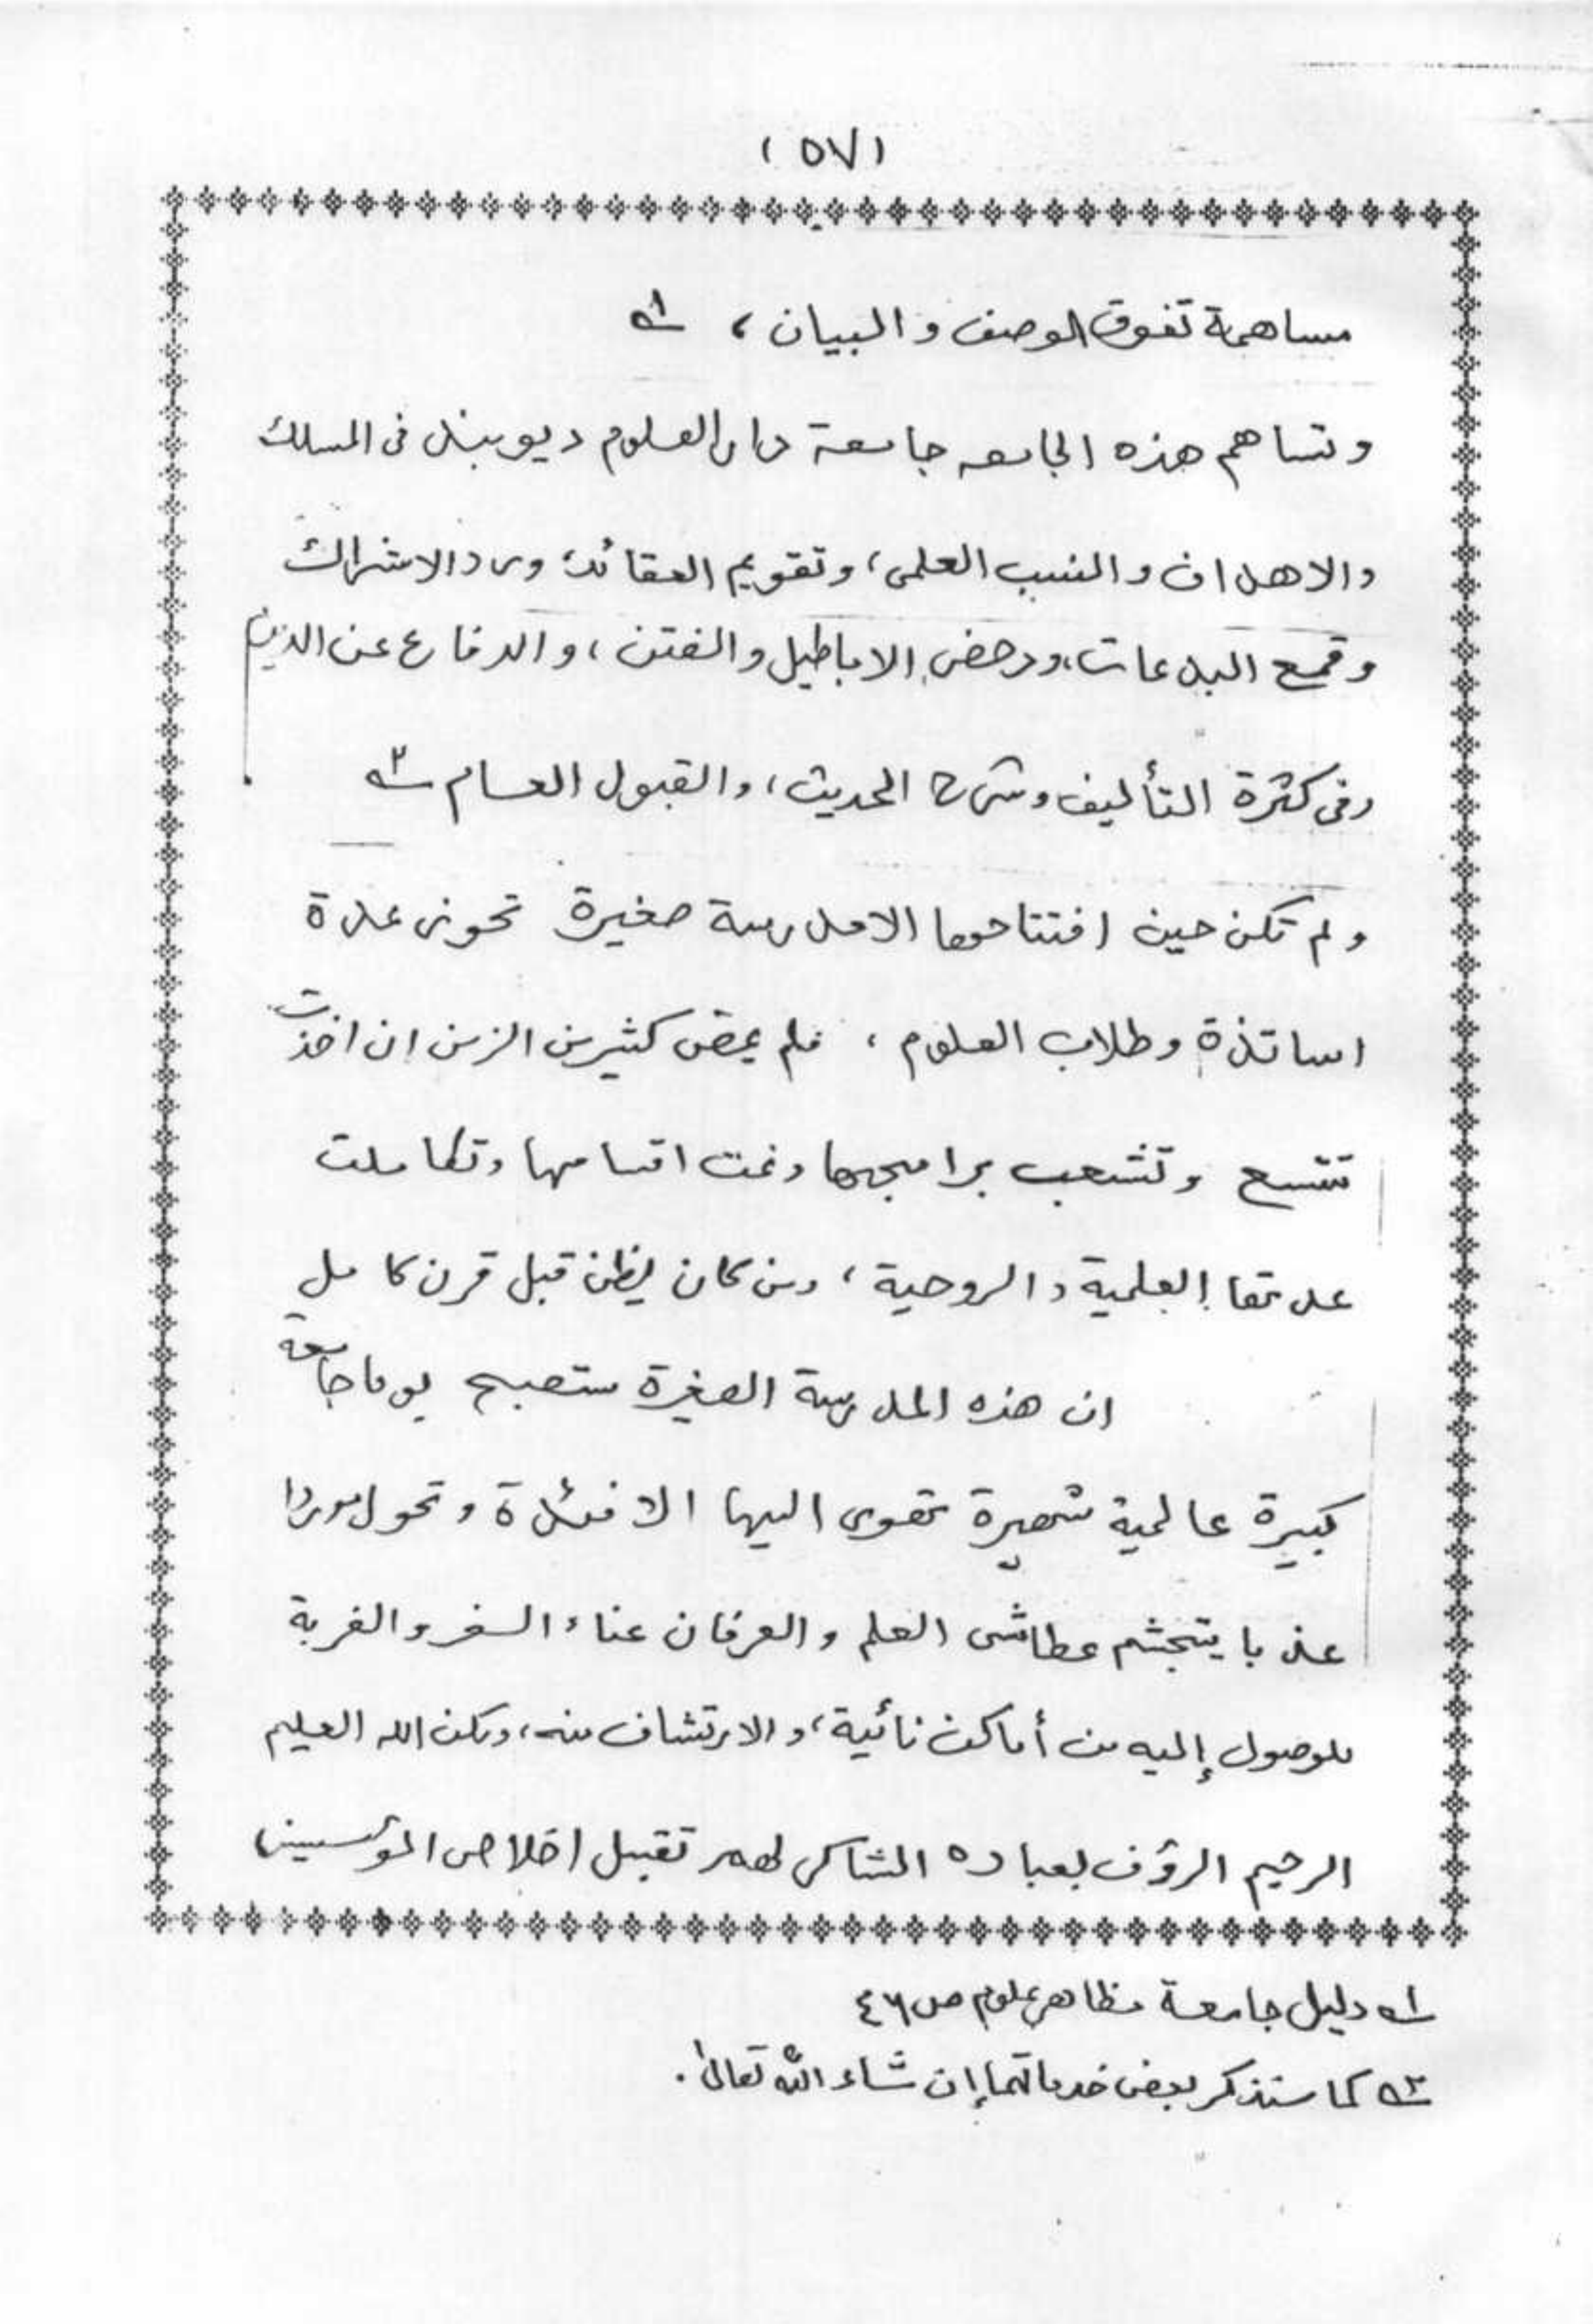 (٥٧)
مساهمة تفوق الوصف و البيان، ١ـه
وتساهم هذه الجامعه جامعة دار العلوم ديوبند فى المسلك
والاهداف والنسب العلمى، وتقويم العقائد، ورد الاشراك
وقمع البدعات، ودحض الاباطيل والفتن، والدفاع عن الدين
وفى كثرة التأليف وشرح الحديث، والقبول العام ٢ـه
ولم تكن حين افتتاحها الا مدرسة صغيرة تحوى عدة
اساتذة وطلاب العلوم، فلم يمض كثير من الزمن ان اخذت
تتسع وتشعب برامجها ونمت اقسامها وتكاملت
عدتها العلمية والروحية، ومن كان يظن قبل قرن كامل
ان هذه المدرسة الصغيرة ستصبح يوما جامعة
كبيرة عالمية شهيرة تهوى اليها الافئدة وتحول موردا
عذبا يتجشم عطاشى العلم والعرفان عناء السفر والغربة
للوصول إليه من أماكن نائية، والارتشاف منه، ولكن الله العليم
الرحيم الرؤف بعباده الشاكر لهم تقبل اخلاص المؤسسين،
١ـه دليل جامعة مظاهر علوم ص ٤٦
٢ـه كما ستذكر بعض خدماتها إن شاء الله تعالى.